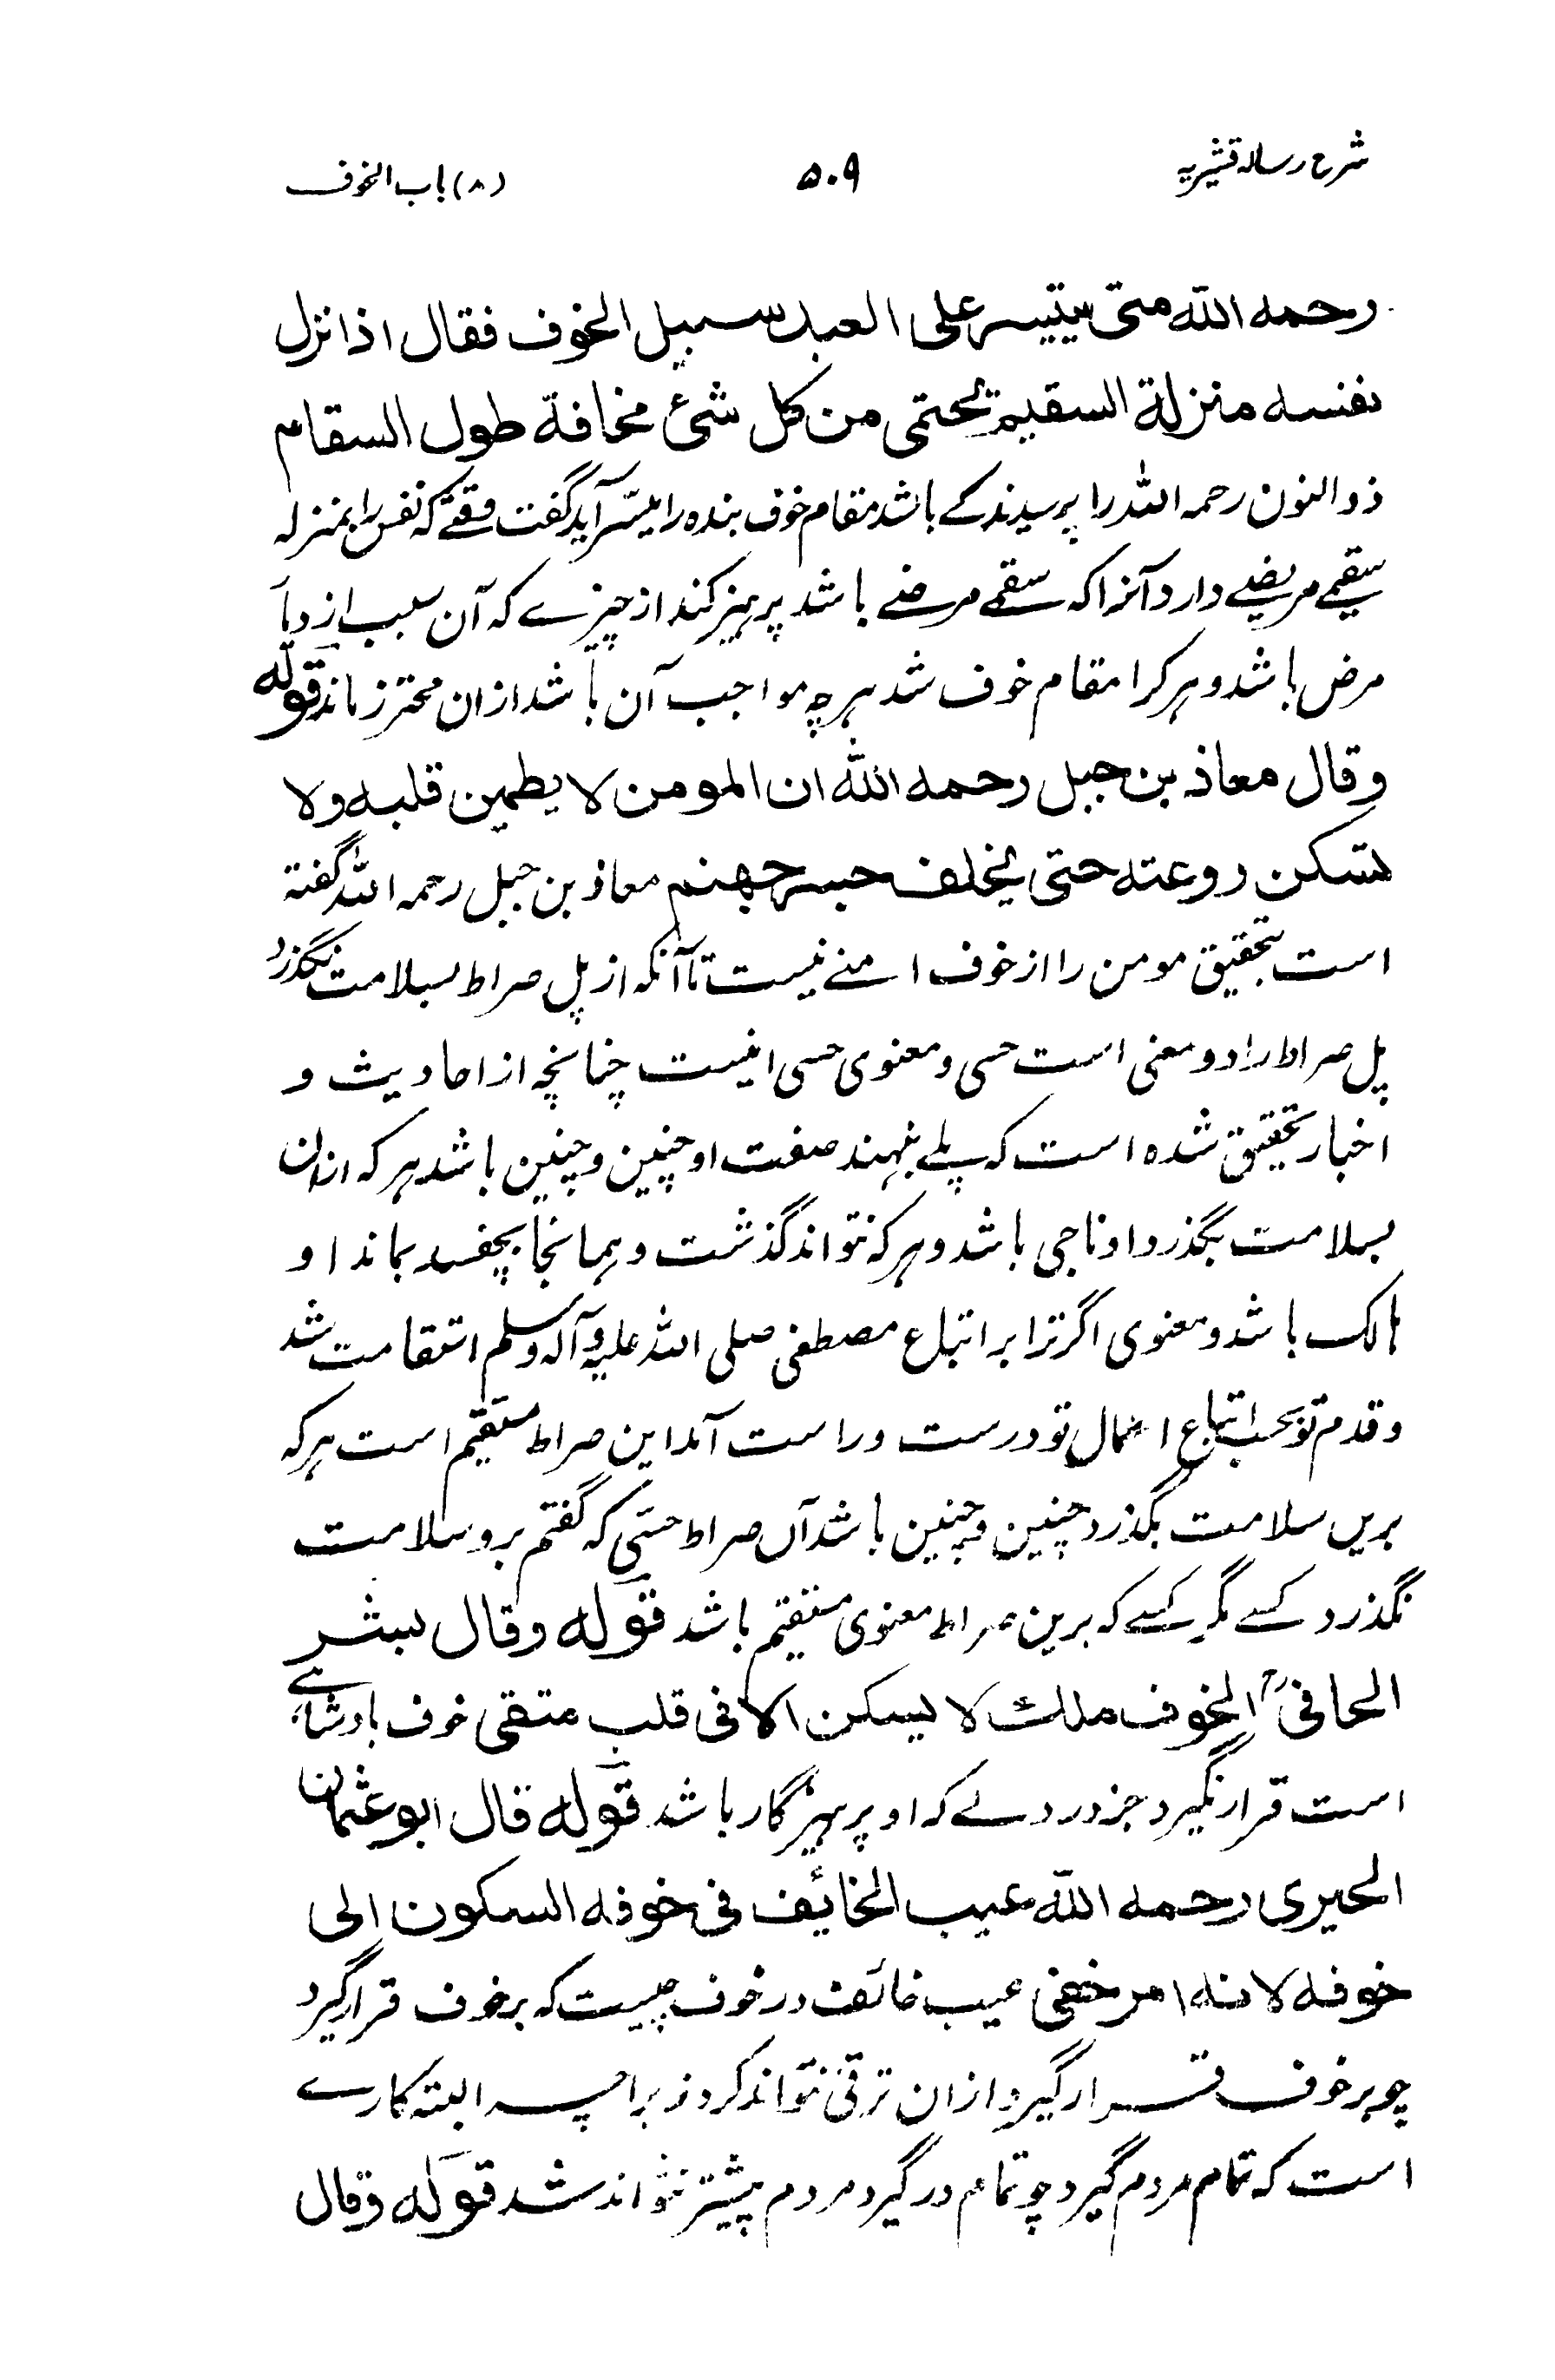 شرح رسالہ قشیریہ
۵۰۹
(۸) باب الخوف
رحمه الله متى يتيسر على العبد سبيل الخوف فقال اذا نزل
نفسه منزلة السقيم يحتمى من كل شئ مخافة طول السقام
ذوالنون رحمہ اللہ را پرسیدند کے باشد مقام خوف بندہ را میسر آید گفت وقتے کہ نفس را بمنزلہ
سقیمے مریضے دارد آنرا کہ سقمے مرضے باشد پرہیز کند از چیزے کہ آن سبب ازدیاد
مرض باشد و ہر کرا مقام خوف شد ہرچہ مواجب آن باشد ازان محترز ماند قوله
وقال معاذ بن جبل رحمه الله ان المومن لا يطمئن قلبه ولا
تسكن روعته حتى يخلف جسر جهنم معاذ بن جبل رحمہ اللہ گفتہ
است بتحقیق مومن را از خوف امنے نیست تا آنکہ از پل صراط بسلامت نگذرد
پل صراط را دو معنی است حسی و معنوی حسی اینست چنانچہ از احادیث و
اخبار تحقیق شدہ است کہ پلے بنہند صفت او چنین و چنین باشد ہر کہ ازان
بسلامت بگذرد او ناجی باشد و ہر کہ نتواند گذشت و ہمانجا بچفسد بماند او
ہالک باشد و معنوی اگر ترا بر اتباع مصطفی صلی اللہ علیہ وآلہ وسلم استقامت شد
و قدم تو بحسب اتباع اعمال تو درست و راست آمد این صراط مستقیم است ہر کہ
بریں سلامت بگذرد چنین و چنین باشد آں صراط حسّی کہ گفتم برو سلامت
نگذرد کسے مگر کسے کہ برین صراط معنوی مستقیم باشد قوله وقال بشر
الحافىؒ الخوف ملك لا يسكن الا فى قلب متقى خوف بادشاہے
است قرار نگیرد جز در دلے کہ او پرہیزگار باشد قوله قال ابو عثمان
الحيرى رحمه الله عيب الخائف فى خوفه السكون الى
خوفه لانه امر خفى عیب خائف در خوف چیست کہ بر خوف قرار گیرد
چو بر خوف قرار گیرد ازان ترقی نتواند کرد زیراچہ البتہ کارے
است کہ تمام مردم گیرد چو تمام در گیرد مردم پیشتر نتواند شد قوله وقال